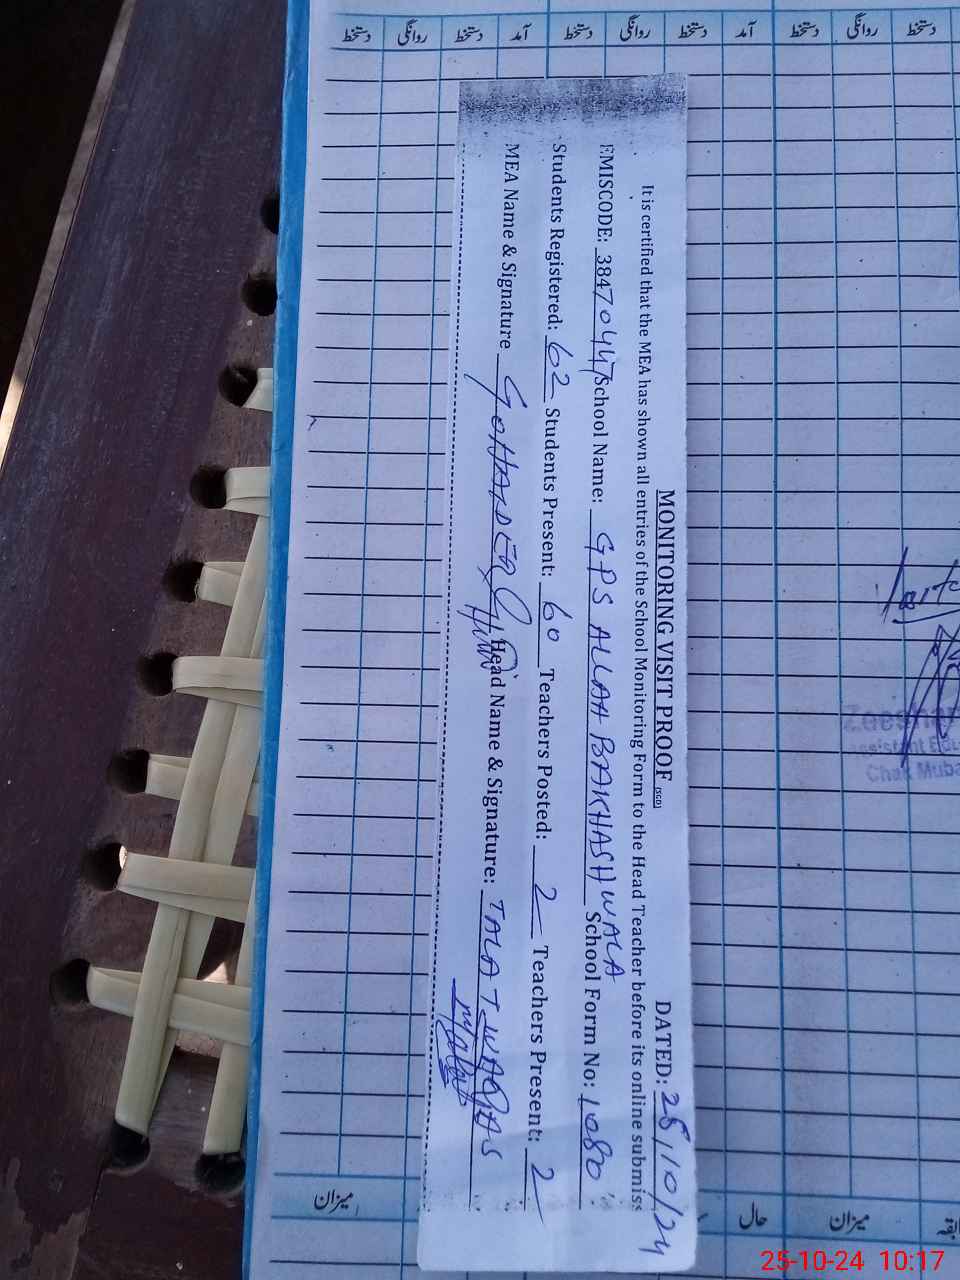 دستخط روانگی دستخط آمد دستخط روانگی دستخط آمد دستخط روانگی دستخط
MONITORING VISIT PROOF (SGD) DATED: 28/10/24
It is certified that the MEA has shown all entries of the School Monitoring Form to the Head Teacher before its online submiss
EMISCODE: 38470447 School Name: GPS ALLAH BAKHASH WALA School Form No: 1080
Students Registered: 62 Students Present: 60 Teachers Posted: 2 Teachers Present: 2
MEA Name & Signature Head Name & Signature: TALAT WAQAS
Zeeshan
Assistant Edu
Chak Muba
میزان حال میزان
25-10-24 10:17